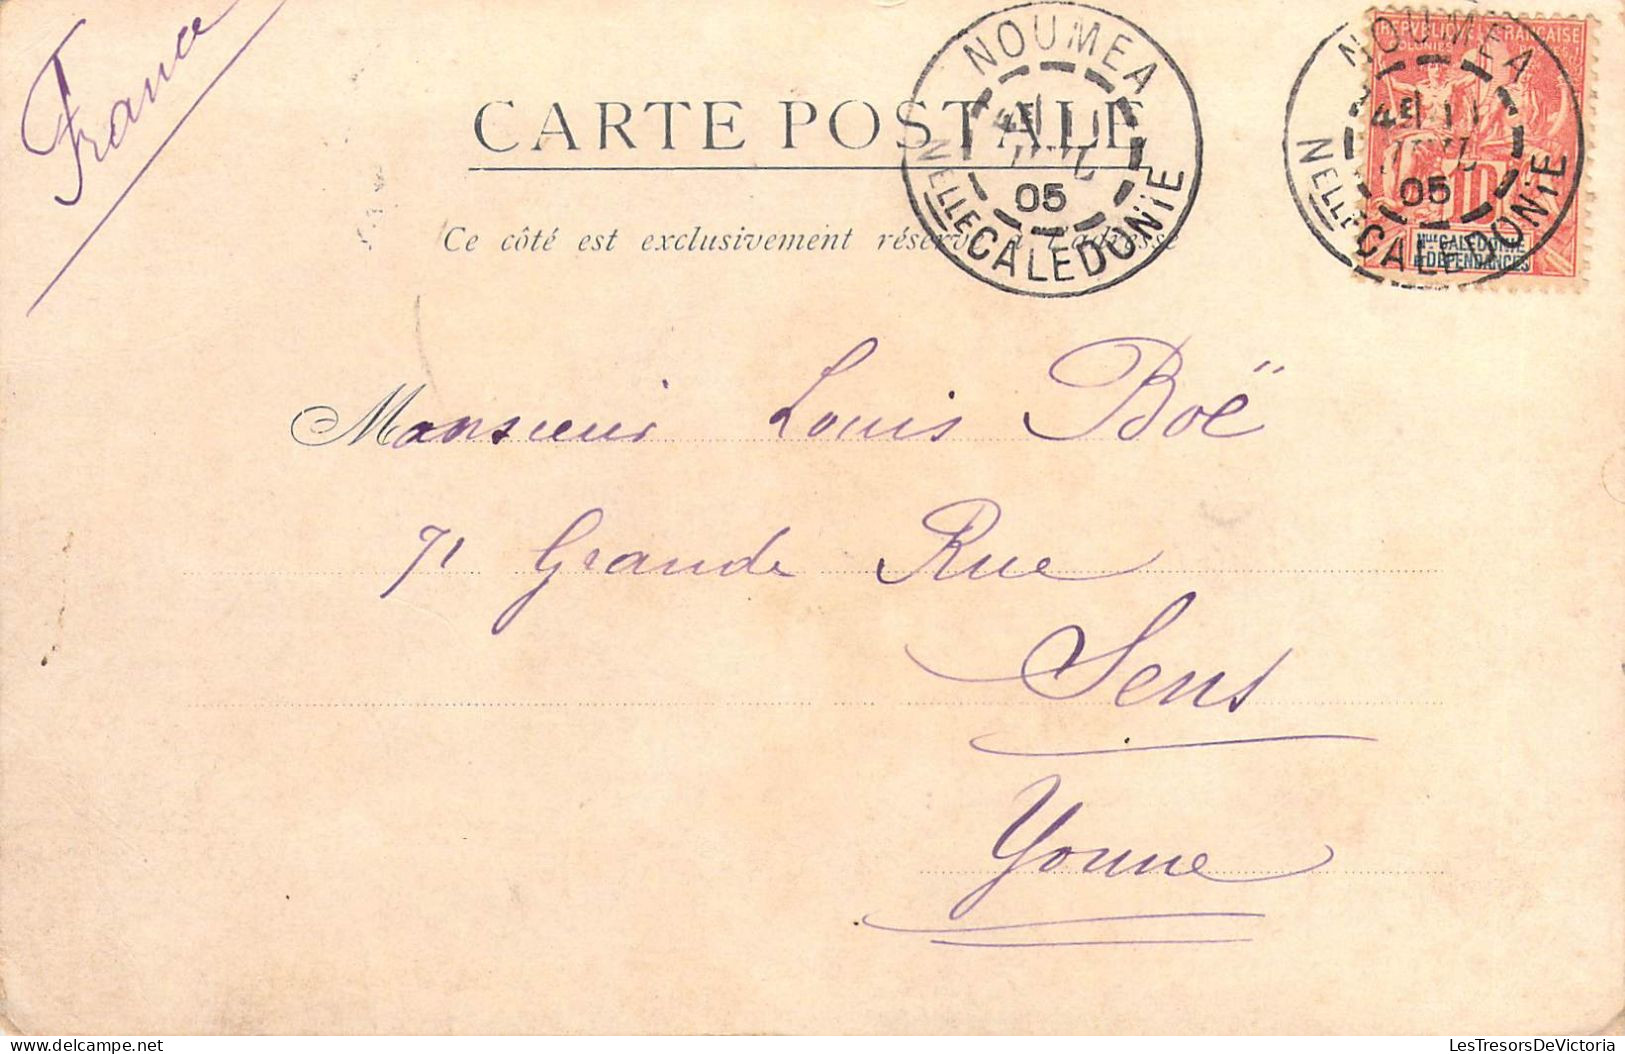 France
CARTE POSTALE
Ce côté est exclusivement réservé à l'adresse
NOUMEA
4E 11
JUIL
05
NELLE CALEDONIE
NOUMEA
4E 11
JUIL
05
NELLE CALEDONIE
REPUBLIQUE FRANÇAISE
COLONIES POSTES
10
NLLE CALEDONIE
ET DEPENDANCES
Monsieur Louis Boë
71 Grande Rue
Sens
Yonne
LesTresorsDeVictoria
delcampe.net